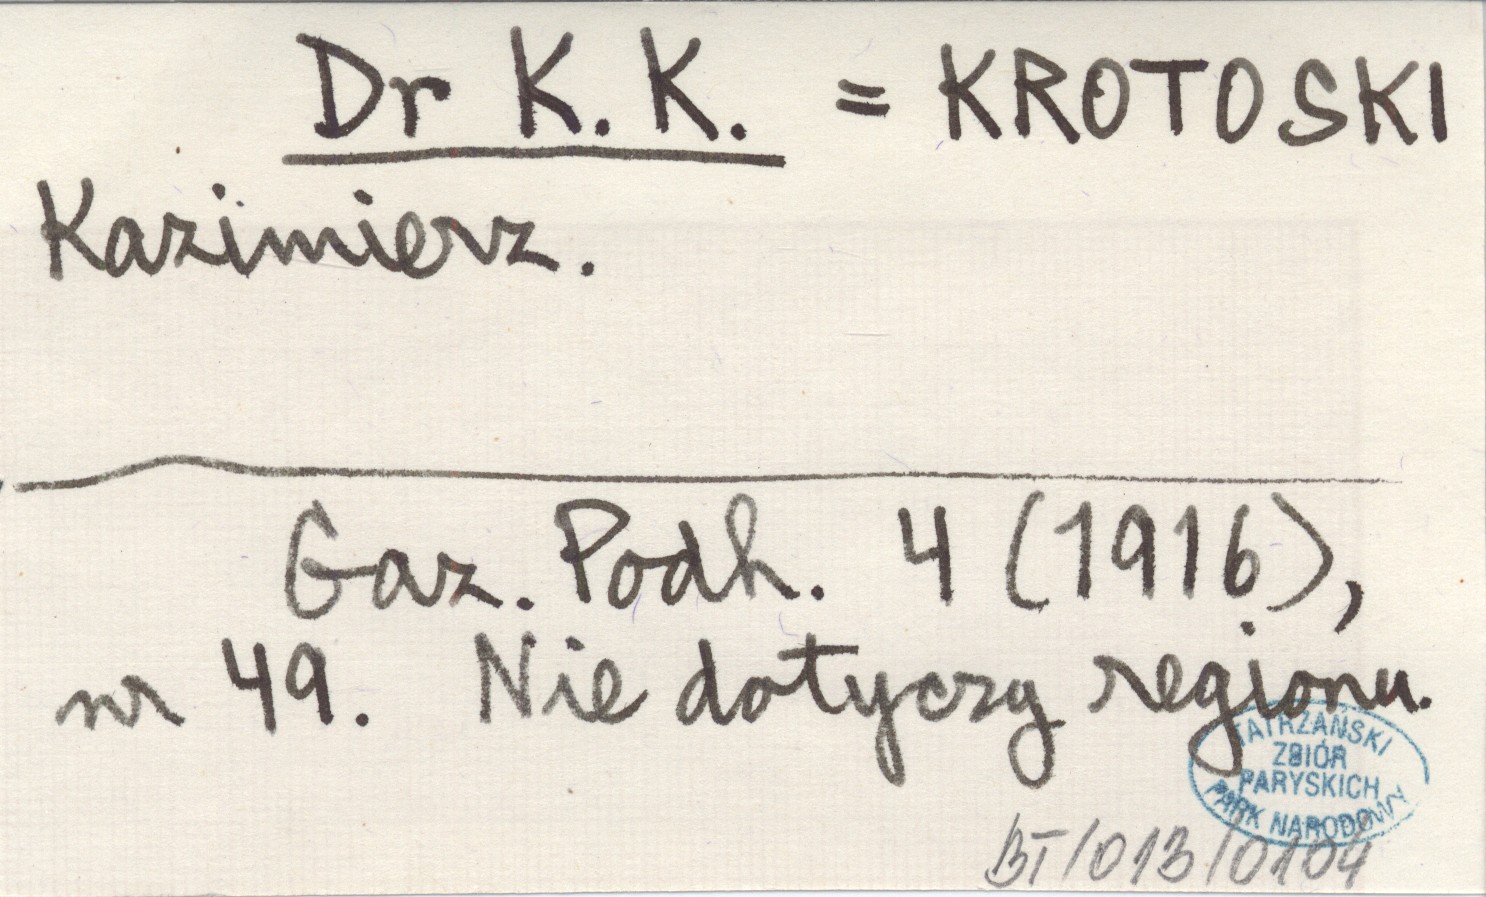 Dr K. K. = KROTOSKI
Kazimierz.
Gaz. Podh. 4 (1916),
nr 49. Nie dotyczy regionu.
TATRZAŃSKI
ZBIÓR
PARYSKICH
PARK NARODOWY
BT/013/0104